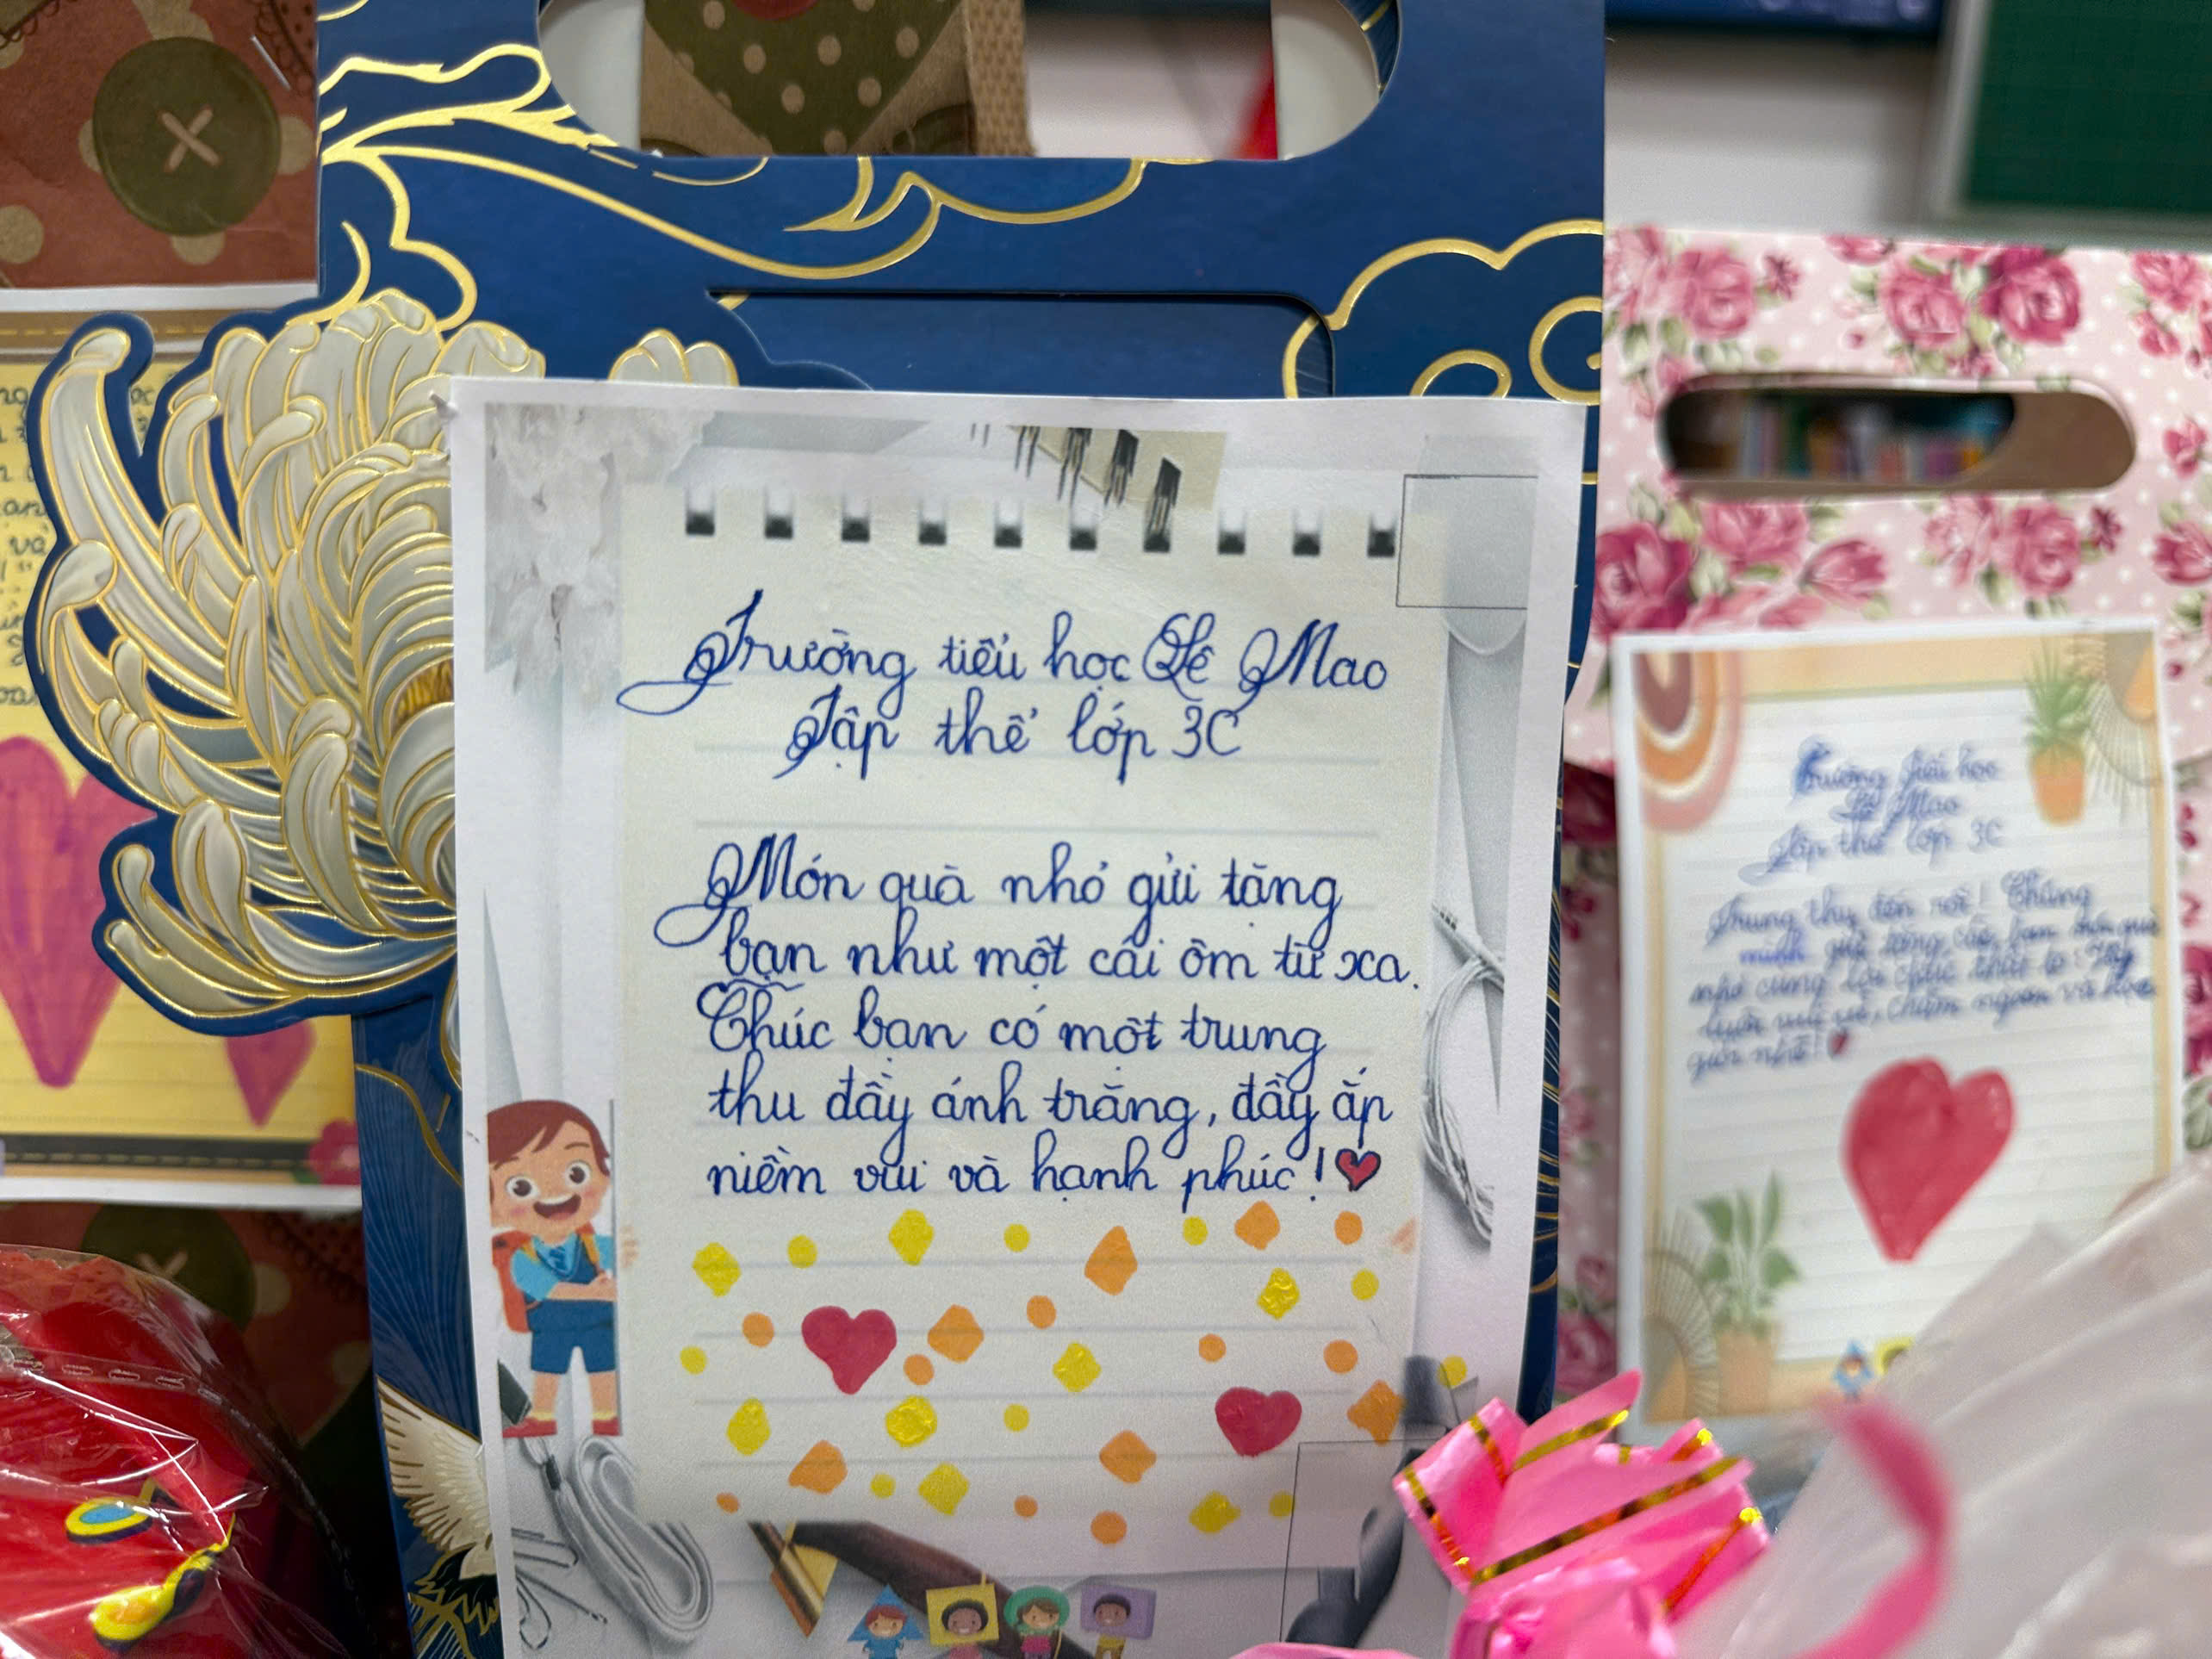 Trường tiểu học Lê Mao
Tập thể lớp 3C
Món quà nhỏ gửi tặng
bạn như một cái ôm từ xa.
Chúc bạn có một trung
thu đầy ánh trăng, đầy ắp
niềm vui và hạnh phúc!
Trường tiểu học
Lê Mao
Tập thể lớp 3C
Trung thu đến rồi! Chúng
mình gửi tặng các bạn món quà
nhỏ cùng lời chúc
luôn vui vẻ, chăm ngoan và học
giỏi nhé!